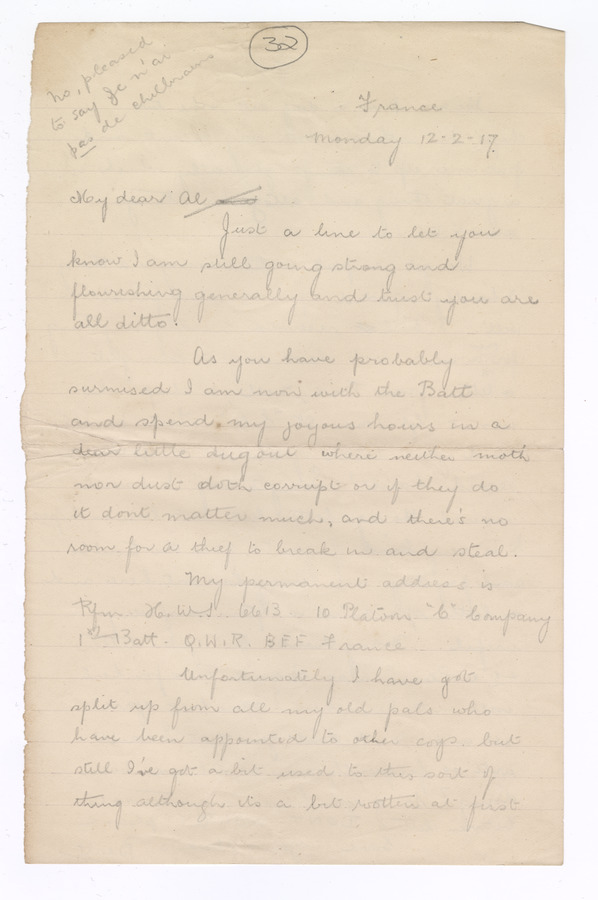 32
No, pleased
to say Je n'ai
pas de chilbrains
France
Monday 12-2-17.
My dear Al
Just a line to let you
know I am still going strong and
flourishing generally and trust you are
all ditto.
As you have probably
surmised I am now with the Batt
and spend my joyous hours in a
dear little dug out where neither moth
nor dust doth corrupt or if they do
it dont matter much, and there's no
room for a thief to break in and steal.
My permanent address is
Rfm H.W.S. 6613 10 Platoon "C" Company
1st Batt. Q.W.R. BEF France
Unfortunately I have got
split up from all my old pals who
have been appointed to other coys. but
still I've got a bit used to this sort of
thing although its a bit rotten at first